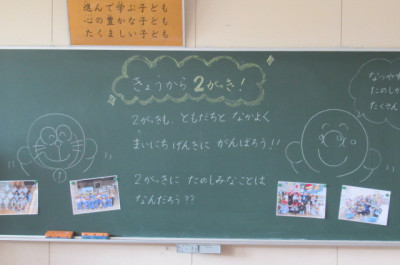 進んで学ぶ子ども
心の豊かな子ども
たくましい子ども
きょうから2がっき!
2がっきも、ともだちと なかよく
まいにち げんきに がんばろう!!
2がっきに たのしみなことは
なんだろう??
なつやす
たのしか
たくさん